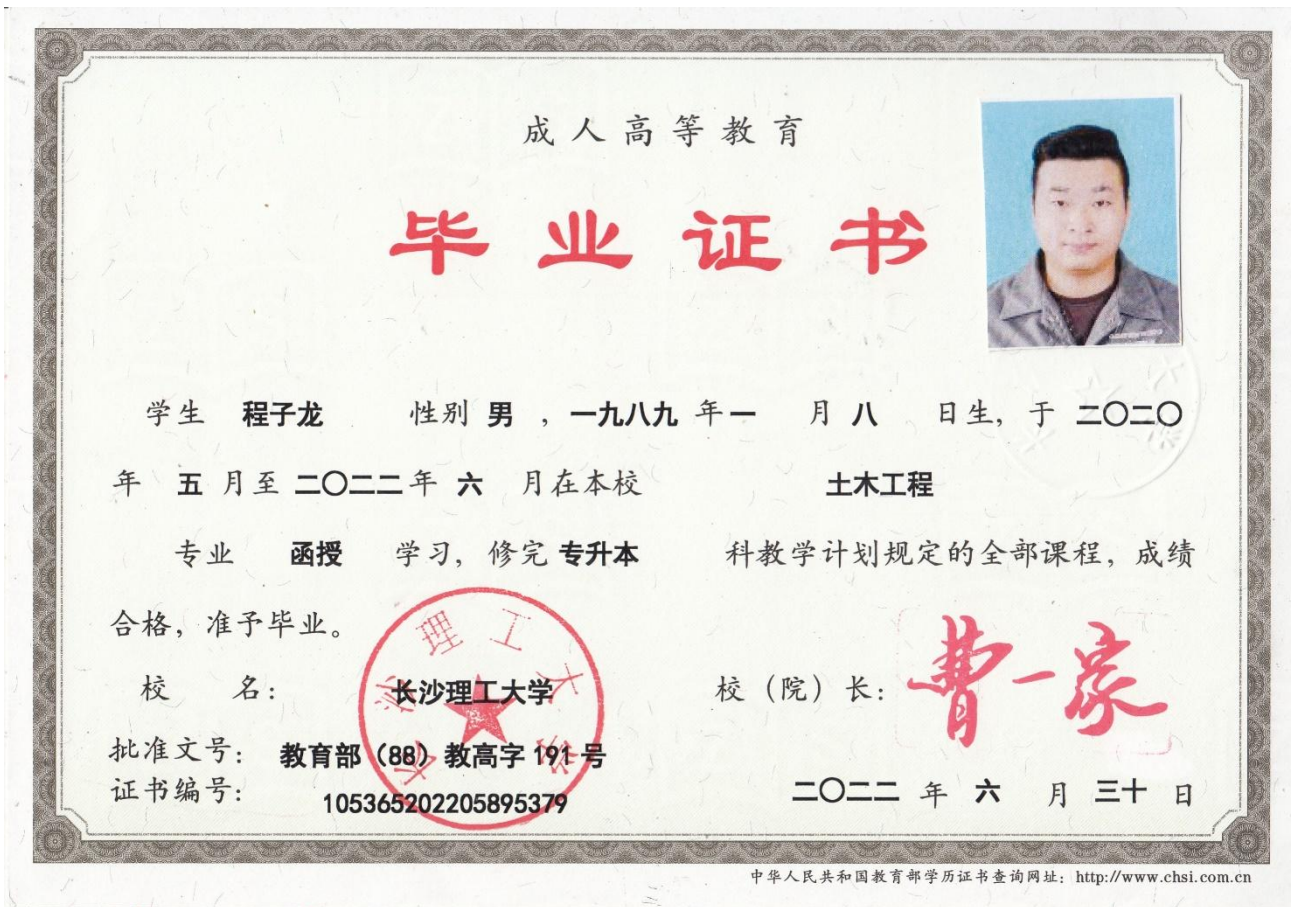 成人高等教育
毕业证书
学生 程子龙 性别 男 ，一九八九 年 一 月 八 日生，于 二〇二〇
年 五 月至 二〇二二 年 六 月在本校 土木工程
专业 函授 学习，修完 专升本 科教学计划规定的全部课程，成绩
合格，准予毕业。
校 名： 长沙理工大学 校（院）长： 曹一家
批准文号： 教育部（88）教高字 191 号
证书编号： 105365202205895379 二〇二二 年 六 月 三十 日
长沙理工大学
中华人民共和国教育部学历证书查询网址：http://www.chsi.com.cn